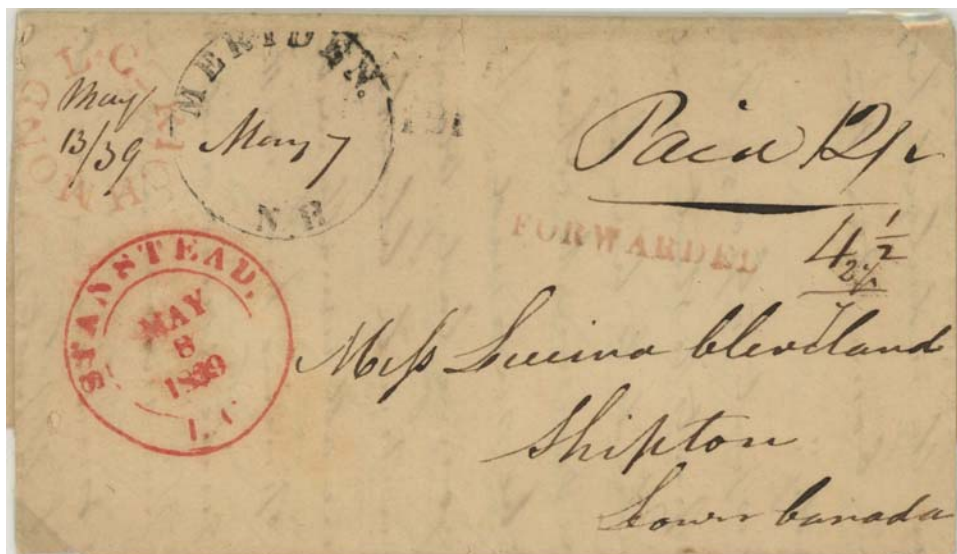 RICHMOND L.C.
May
13/39
MERIDEN.
May 7
N.H
Paid 12½
FORWARDED
4½
2½
7
STANSTEAD,
MAY
8
1839
L.C.
Miss Lucina Cleveland
Shipton
Lower Canada